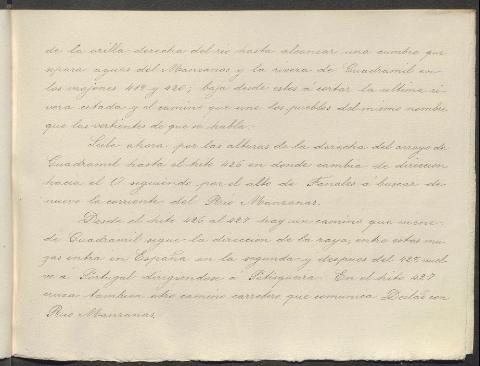 de la orilla derecha del rio hasta alcanzar una cumbre que
separa aguas del Manzanas y la rivera de Guadramil en
los mojones 418 y 420; baja desde estos á cortar la ultima ri-
vera citada y el camino que une los pueblos del mismo nombre
que las vertientes de que se habla.
Sube ahora por las alturas de la derecha del arroyo de
Guadramil hasta el hito 426 en donde cambia de direccion
hacia el O siguiendo por el alto de Fanales á buscar de
nuevo la corriente del Rio Manzanas.
Desde el hito 426 al 427 hay un camino que viene
de Guadramil sigue la direccion de la raya, entre estas mu-
gas entra en España en la segunda y despues del 428 vuel-
ve á Portugal dirigiendose á Petisqueira. En el hito 427
cruza tambien otro camino carretero que comunica Deilao con
Rio Manzanas.